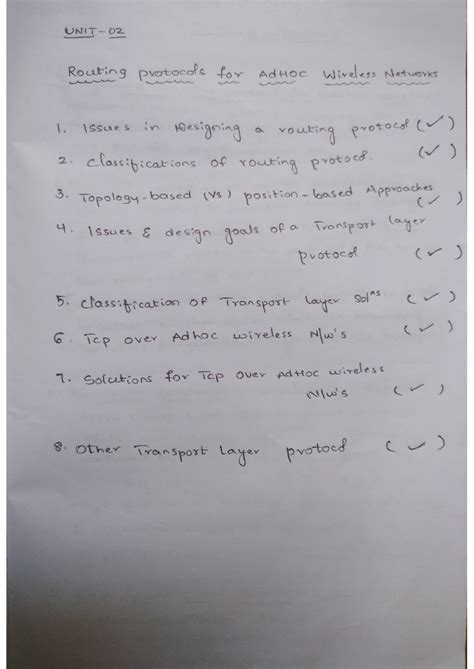 UNIT-02
Routing protocols for AdHOC Wireless Networks
1. Issues in Designing a routing protocol (✓)
2. Classifications of routing protocol. (✓)
3. Topology-based (Vs) position-based Approaches
(✓)
4. Issues & design goals of a Transport layer
protocol (✓)
5. Classification of Transport Layer Solns (✓)
6. Tcp over Adhoc wireless N/w's (✓)
7. Solutions for Tcp over AdHoc wireless
N/w's (✓)
8. Other Transport Layer protocol (✓)